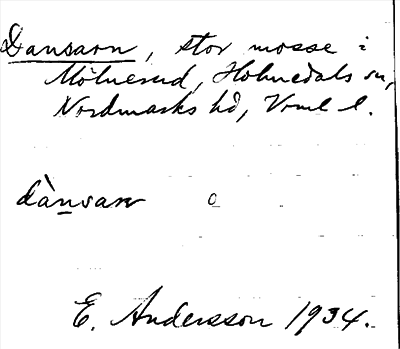 Dansarn, stor mosse i
Mölnerud, Holmedals sn,
Nordmarks hd, Vrml l.
dànsaṇ
E. Andersson 1934.